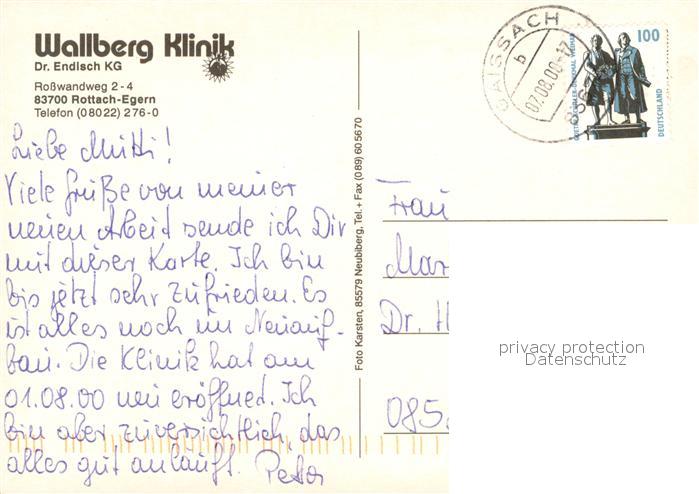 Wallberg Klinik
Dr. Endisch KG
Roßwandweg 2-4
83700 Rottach-Egern
Telefon (08022) 276-0
Liebe Mutti!
Viele Grüße von meiner
neuen Arbeit sende ich Dir
mit dieser Karte. Ich bin
bis jetzt sehr zufrieden. Es
ist alles noch im Neuauf-
bau. Die Klinik hat am
01.08.00 neu eröffnet. Ich
bin aber zuversichtlich, das
alles gut anläuft. Peter
Foto Karsten, 85579 Neubiberg, Tel. + Fax (089) 605670
GAISSACH
b
07.08.00
100
DEUTSCHLAND
Frau
Mar
Dr. H
085
privacy protection
Datenschutz